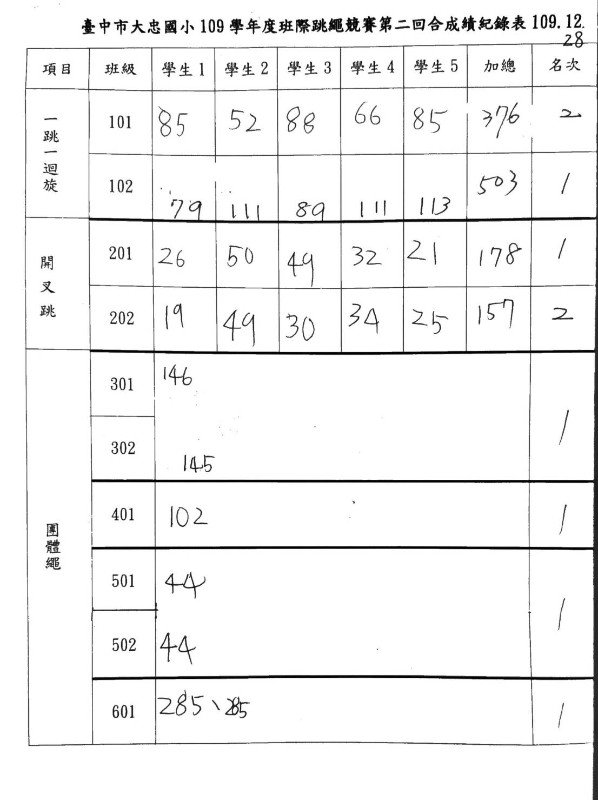 臺中市大忠國小109學年度班際跳繩競賽第二回合成績紀錄表109.12.28
項目 班級 學生1 學生2 學生3 學生4 學生5 加總 名次
一跳一迴旋 101 85 52 88 66 85 376 2
102 79 111 89 111 113 503 1
開叉跳 201 26 50 49 32 21 178 1
202 19 49 30 34 25 157 2
團體繩 301 146 1
302 145
401 102 1
501 44 1
502 44
601 285、285 1